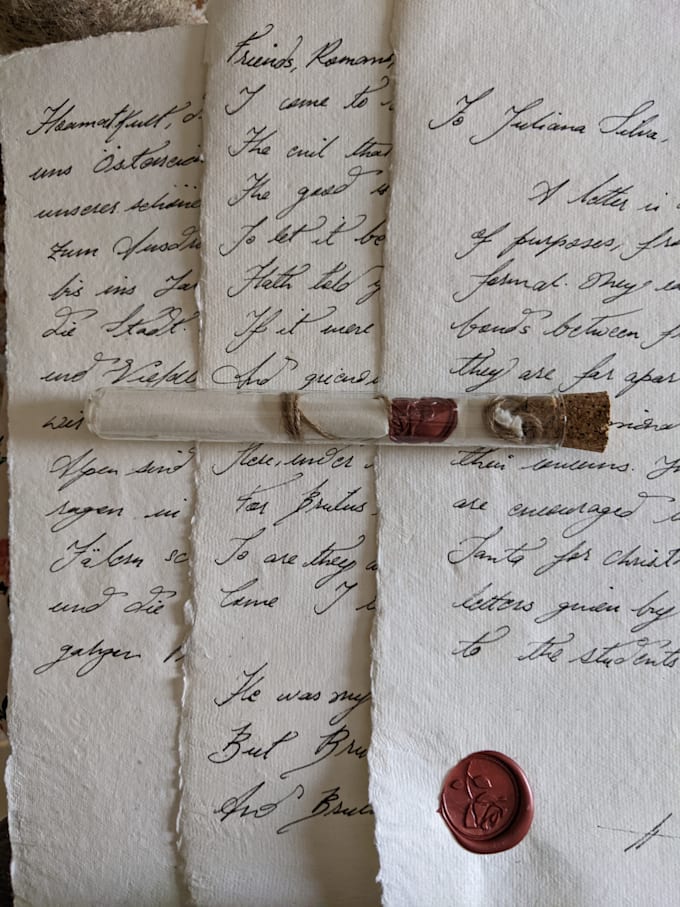 Heamatkult, d
uns Östarreic
unserer schöne
zum Ausdr
bis ins Ja
die Stadt.
und Vielfel
wir
Alpen sind
ragen in
Tälern sc
und die
ganzen
Friends, Romans,
I come to
The evil that
The good is
So let it be
Hath told y
If it were
And grievou
Here, under
For Brutus
So are they a
Come I
He was my
But Bru
And Brut
To Juliana Silva,
A letter is
of purposes, fro
formal. They
bonds between f
they are far apar
their concerns. In
are encouraged
Santa for christ
letters given by
to the students